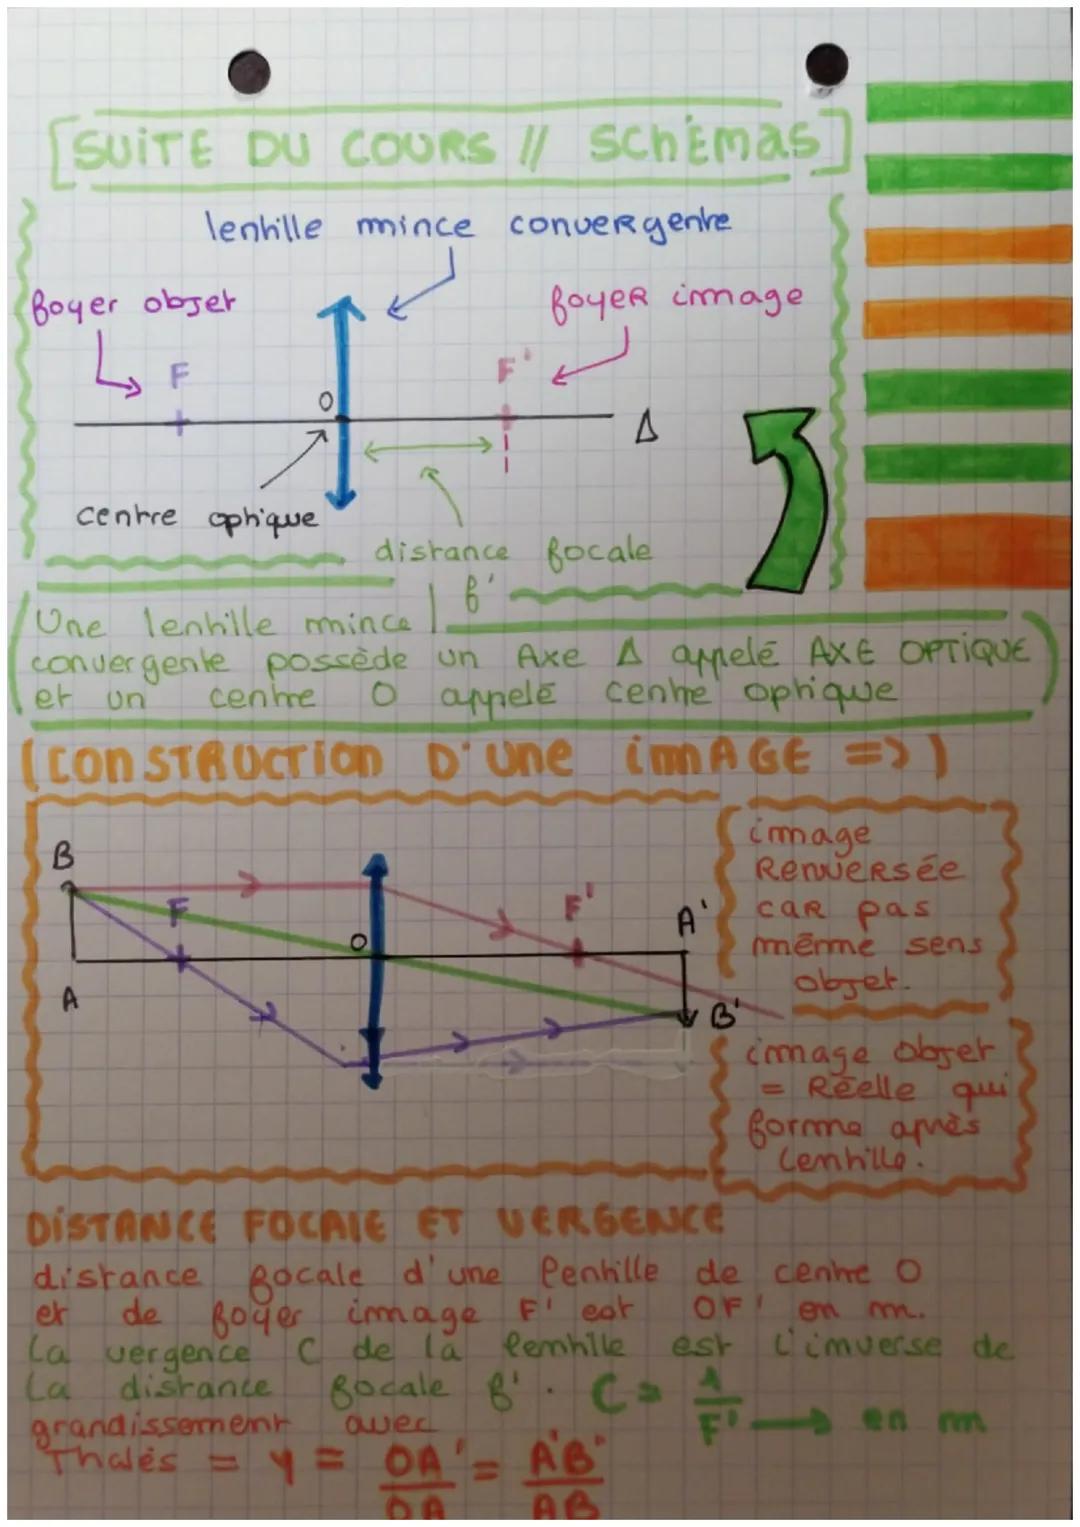 [SUITE DU COURS // SCHÉMAS]
lentille mince convergente
foyer objet
foyer image
F
F'
O
Δ
centre optique
distance focale
f'
Une lentille mince
convergente possède un Axe Δ appelé AXE OPTIQUE
et un centre O appelé centre optique
(CONSTRUCTION D'UNE IMAGE =>)
B
F
O
F'
A'
A
B'
image
Renversée
car pas
même sens
objet.
image objet
= Réelle qui
forme après
lentille.
DISTANCE FOCALE ET VERGENCE
distance focale d'une lentille de centre O
et de foyer image F' est OF' en m.
La vergence C de la lentille est l'inverse de
la distance focale f'. C = 1/F' → en m
grandissement avec
Thalès = γ = OA'/OA = A'B'/AB